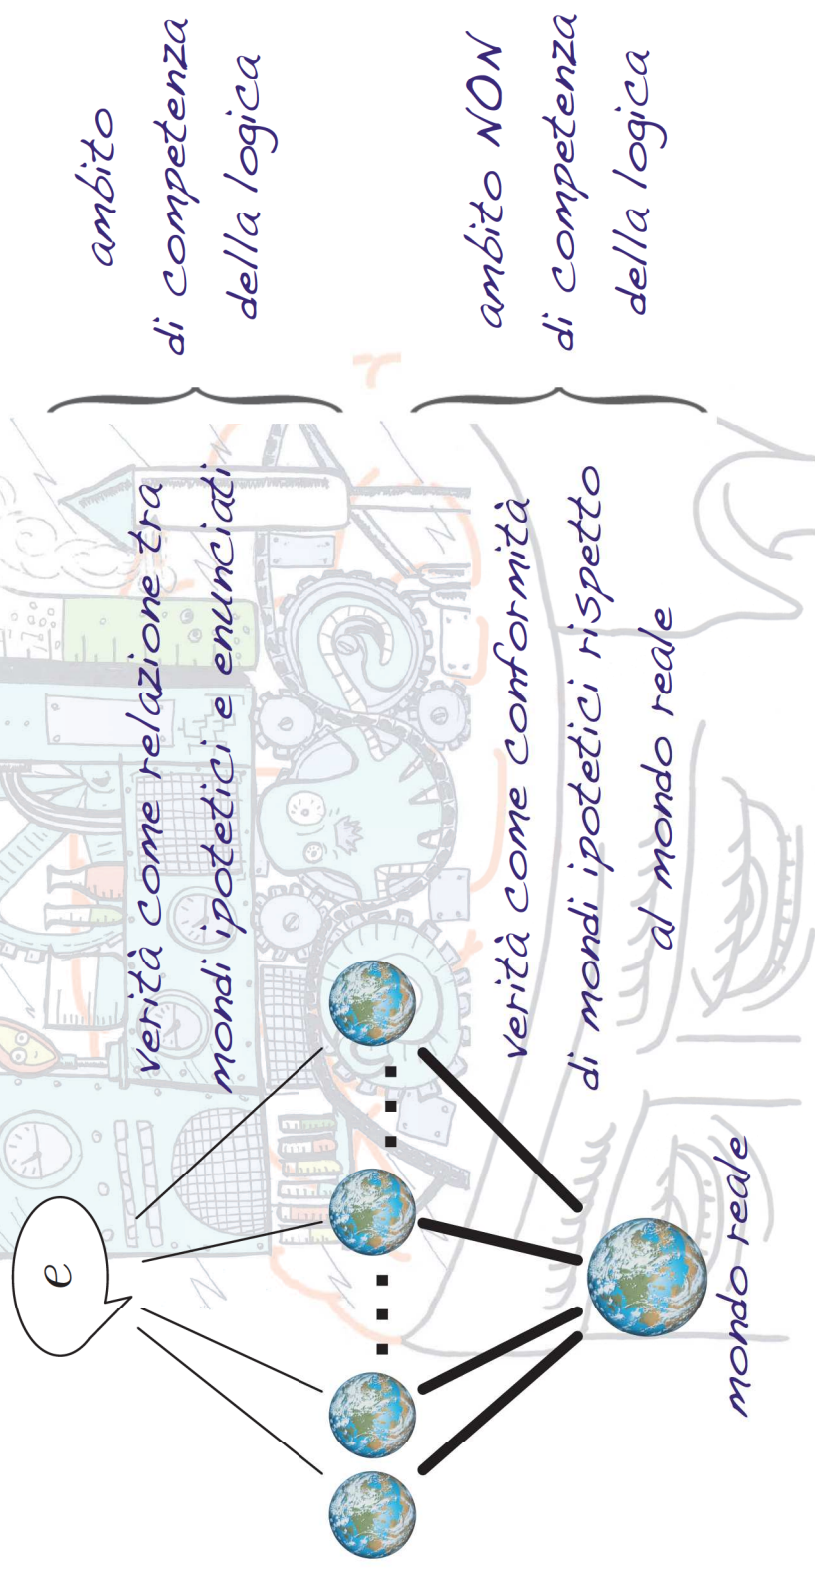 e
verità come relazione tra
mondi ipotetici e enunciati
ambito
di competenza
della logica
verità come conformità
di mondi ipotetici rispetto
al mondo reale
ambito NON
di competenza
della logica
mondo reale